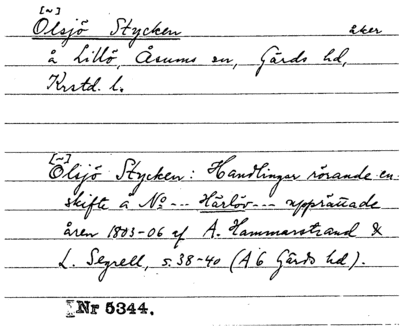 [~]
Olsjö Stycken åker
å Lillö, Åsums sn, Gärds hd,
Krstd. l.
[~]
Olsjö Stycken: Handlingar rörande en-
skifte å No --- Härlöv --- upprättade
åren 1803-06 af A. Hammarstrand &
L. Segrell, s. 38-40 (A 6 Gärds hd).
Nr 5344.